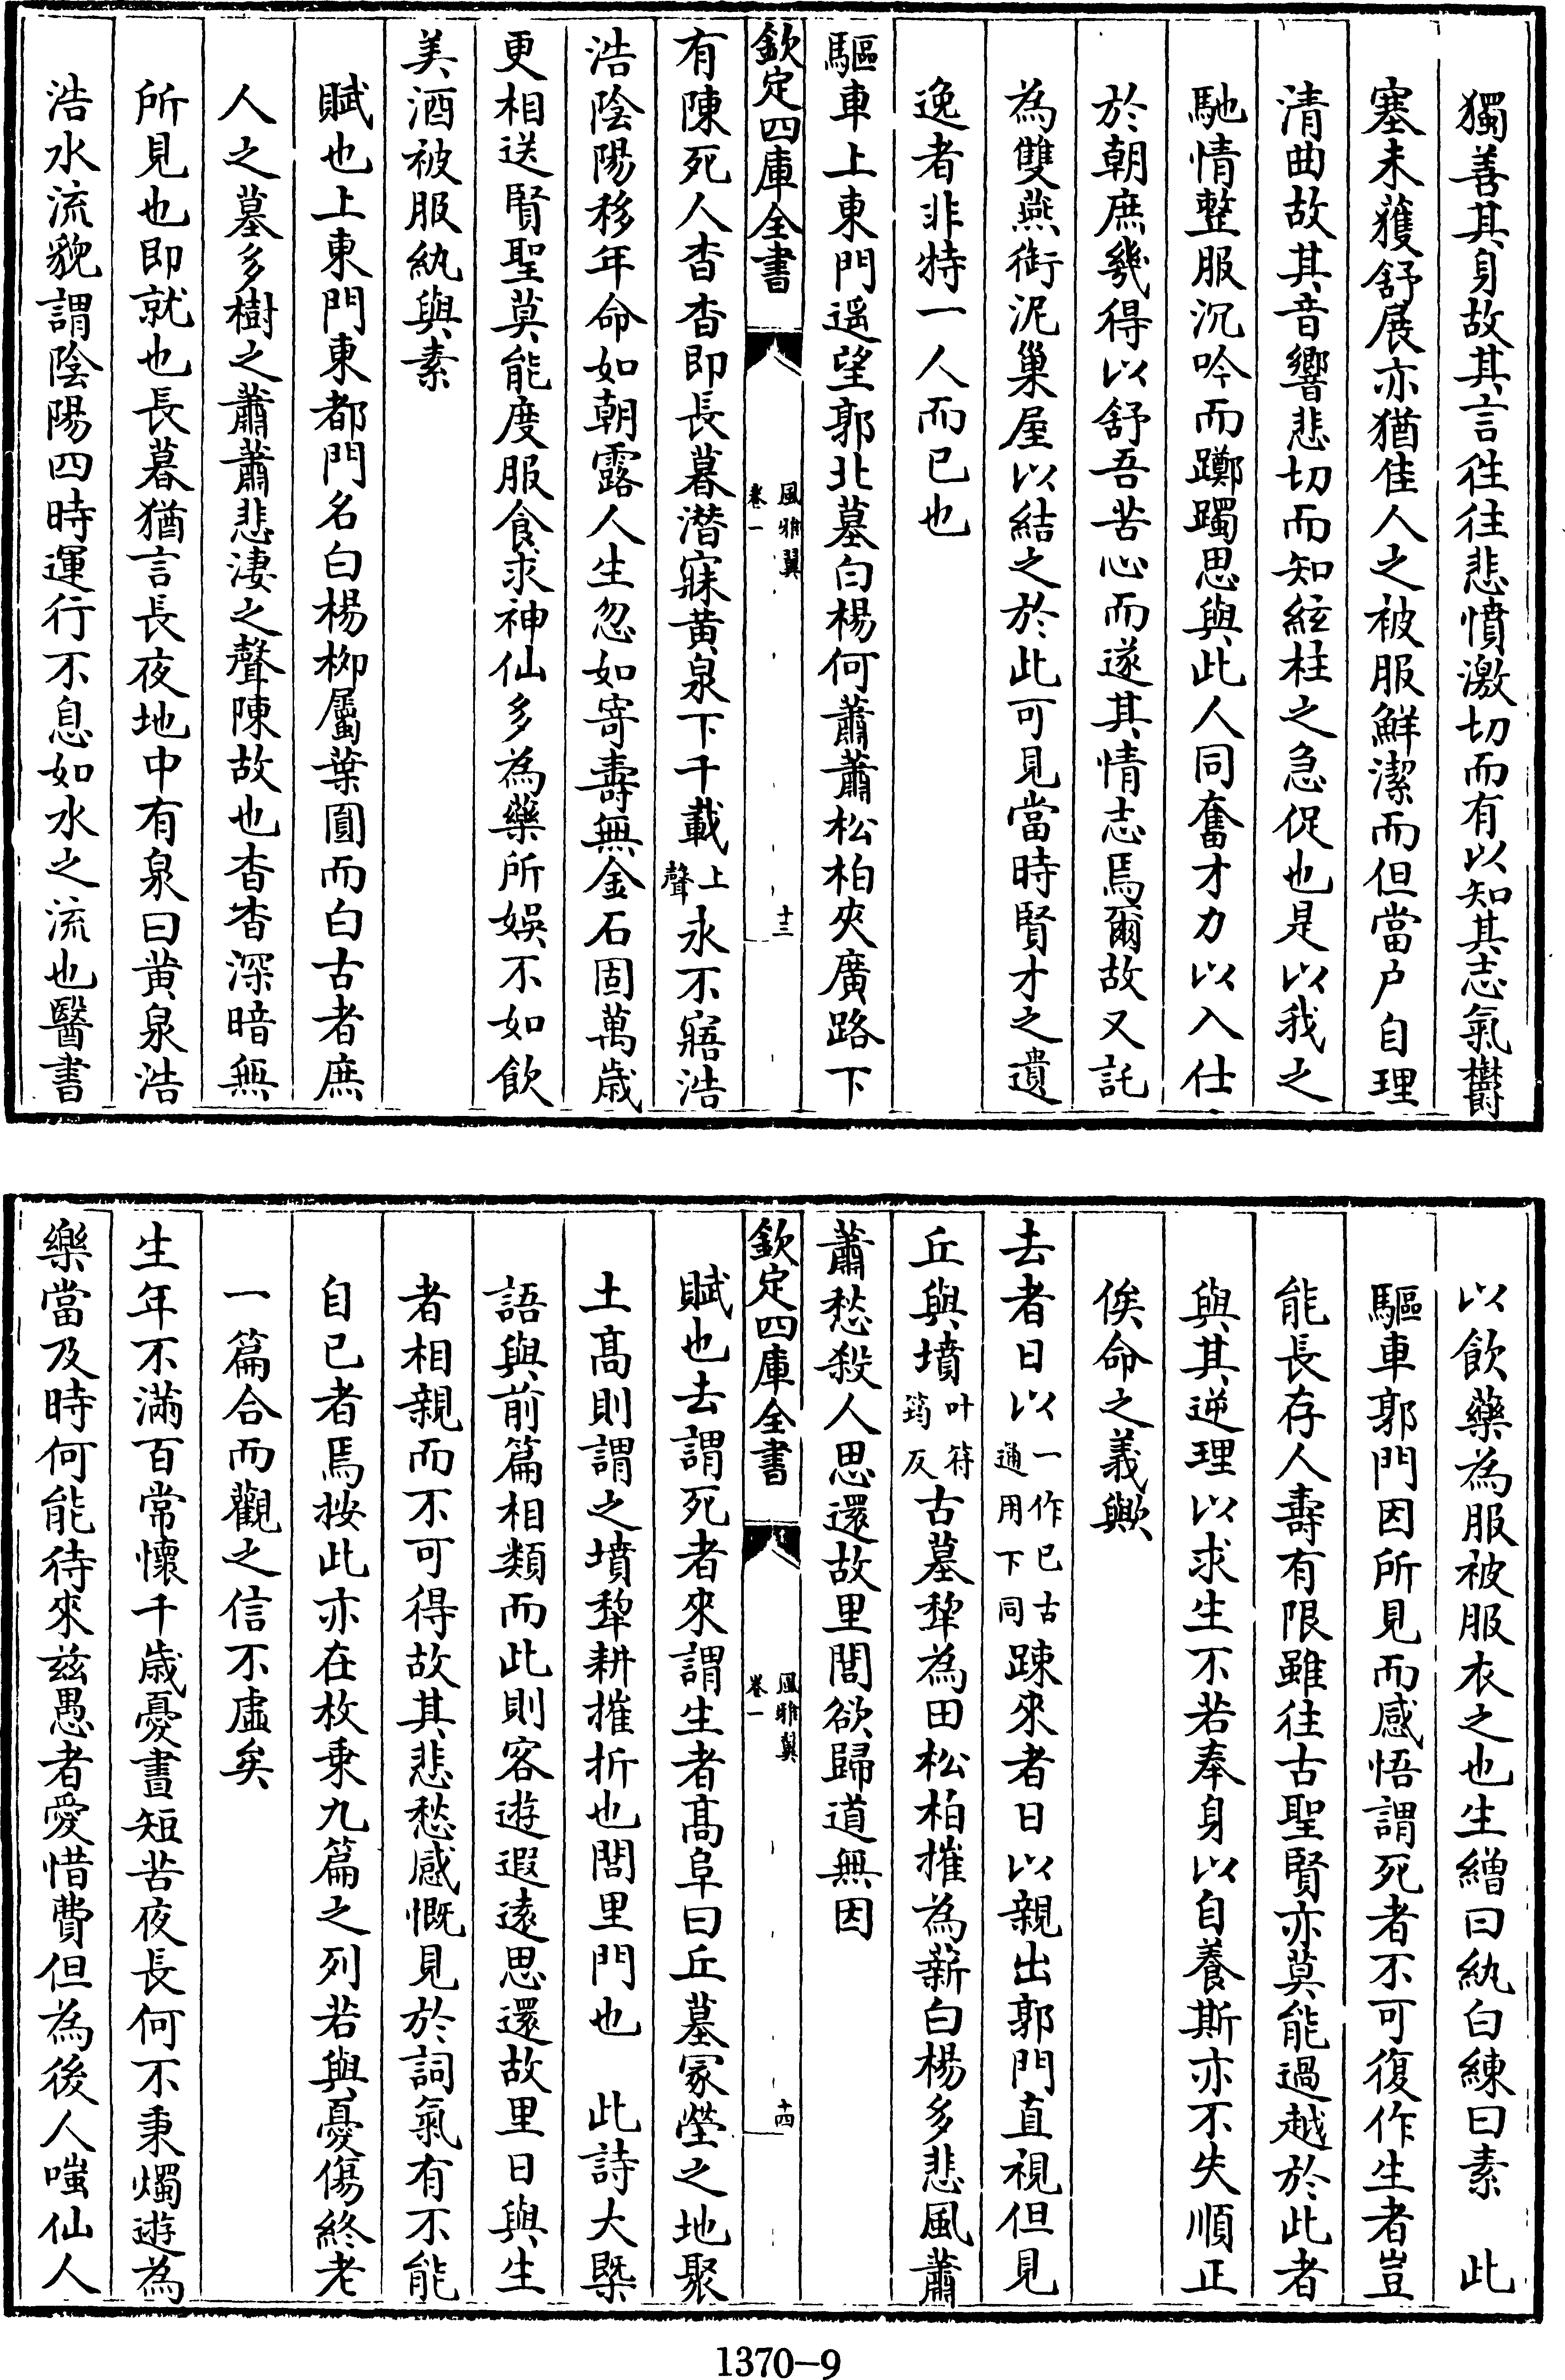 獨善其身故其言徃徃悲憤激切而有以知其志氣欝
塞未獲舒展亦猶佳人之被服鮮潔而但當户自理
清曲故其音響悲切而知絃柱之急促也是以我之
馳情整服沉吟而躑躅思與此人同奮才力以入仕
於朝庶幾得以舒吾苦心而遂其情志焉爾故又託
為雙燕銜泥巢屋以結之於此可見當時賢才之遺
逸者非特一人而已也
驅車上東門遥望郭北墓白楊何蕭蕭松柏夾廣路下
欽定四庫全書
風雅翼
卷一
十三
有陳死人杳杳即長暮潛寐黄泉下千載上聲永不寤浩
浩陰陽移年命如朝露人生忽如寄壽無金石固萬歲
更相送賢聖莫能度服食求神仙多為藥所娯不如飲
美酒被服紈與素
賦也上東門東都門名白楊栁屬葉圓而白古者庶
人之墓多樹之蕭蕭悲淒之聲陳故也杳杳深暗無
所見也即就也長暮猶言長夜地中有泉曰黄泉浩
浩水流貌謂陰陽四時運行不息如水之流也醫書
以飲藥為服被服衣之也生繒曰紈白練曰素　此
驅車郭門因所見而感悟謂死者不可復作生者豈
能長存人壽有限雖往古聖賢亦莫能過越於此者
與其逆理以求生不若奉身以自養斯亦不失順正
俟命之義歟
去者日以一作已古通用下同踈來者日以親出郭門直視但見
丘與墳叶符筠反古墓犂為田松柏摧為薪白楊多悲風蕭
蕭愁殺人思還故里閭欲歸道無因
欽定四庫全書
風雅翼
卷一
十四
賦也去謂死者來謂生者髙阜曰丘墓冢塋之地聚
土髙則謂之墳犂耕摧折也閭里門也　此詩大槩
語與前篇相類而此則客遊遐遠思還故里日與生
者相親而不可得故其悲愁感慨見於詞氣有不能
自已者焉按此亦在枚乘九篇之列若與憂傷終老
一篇合而觀之信不虚矣
生年不滿百常懷千歲憂晝短苦夜長何不秉燭遊為
樂當及時何能待來兹愚者愛惜費但為後人嗤仙人
1370-9